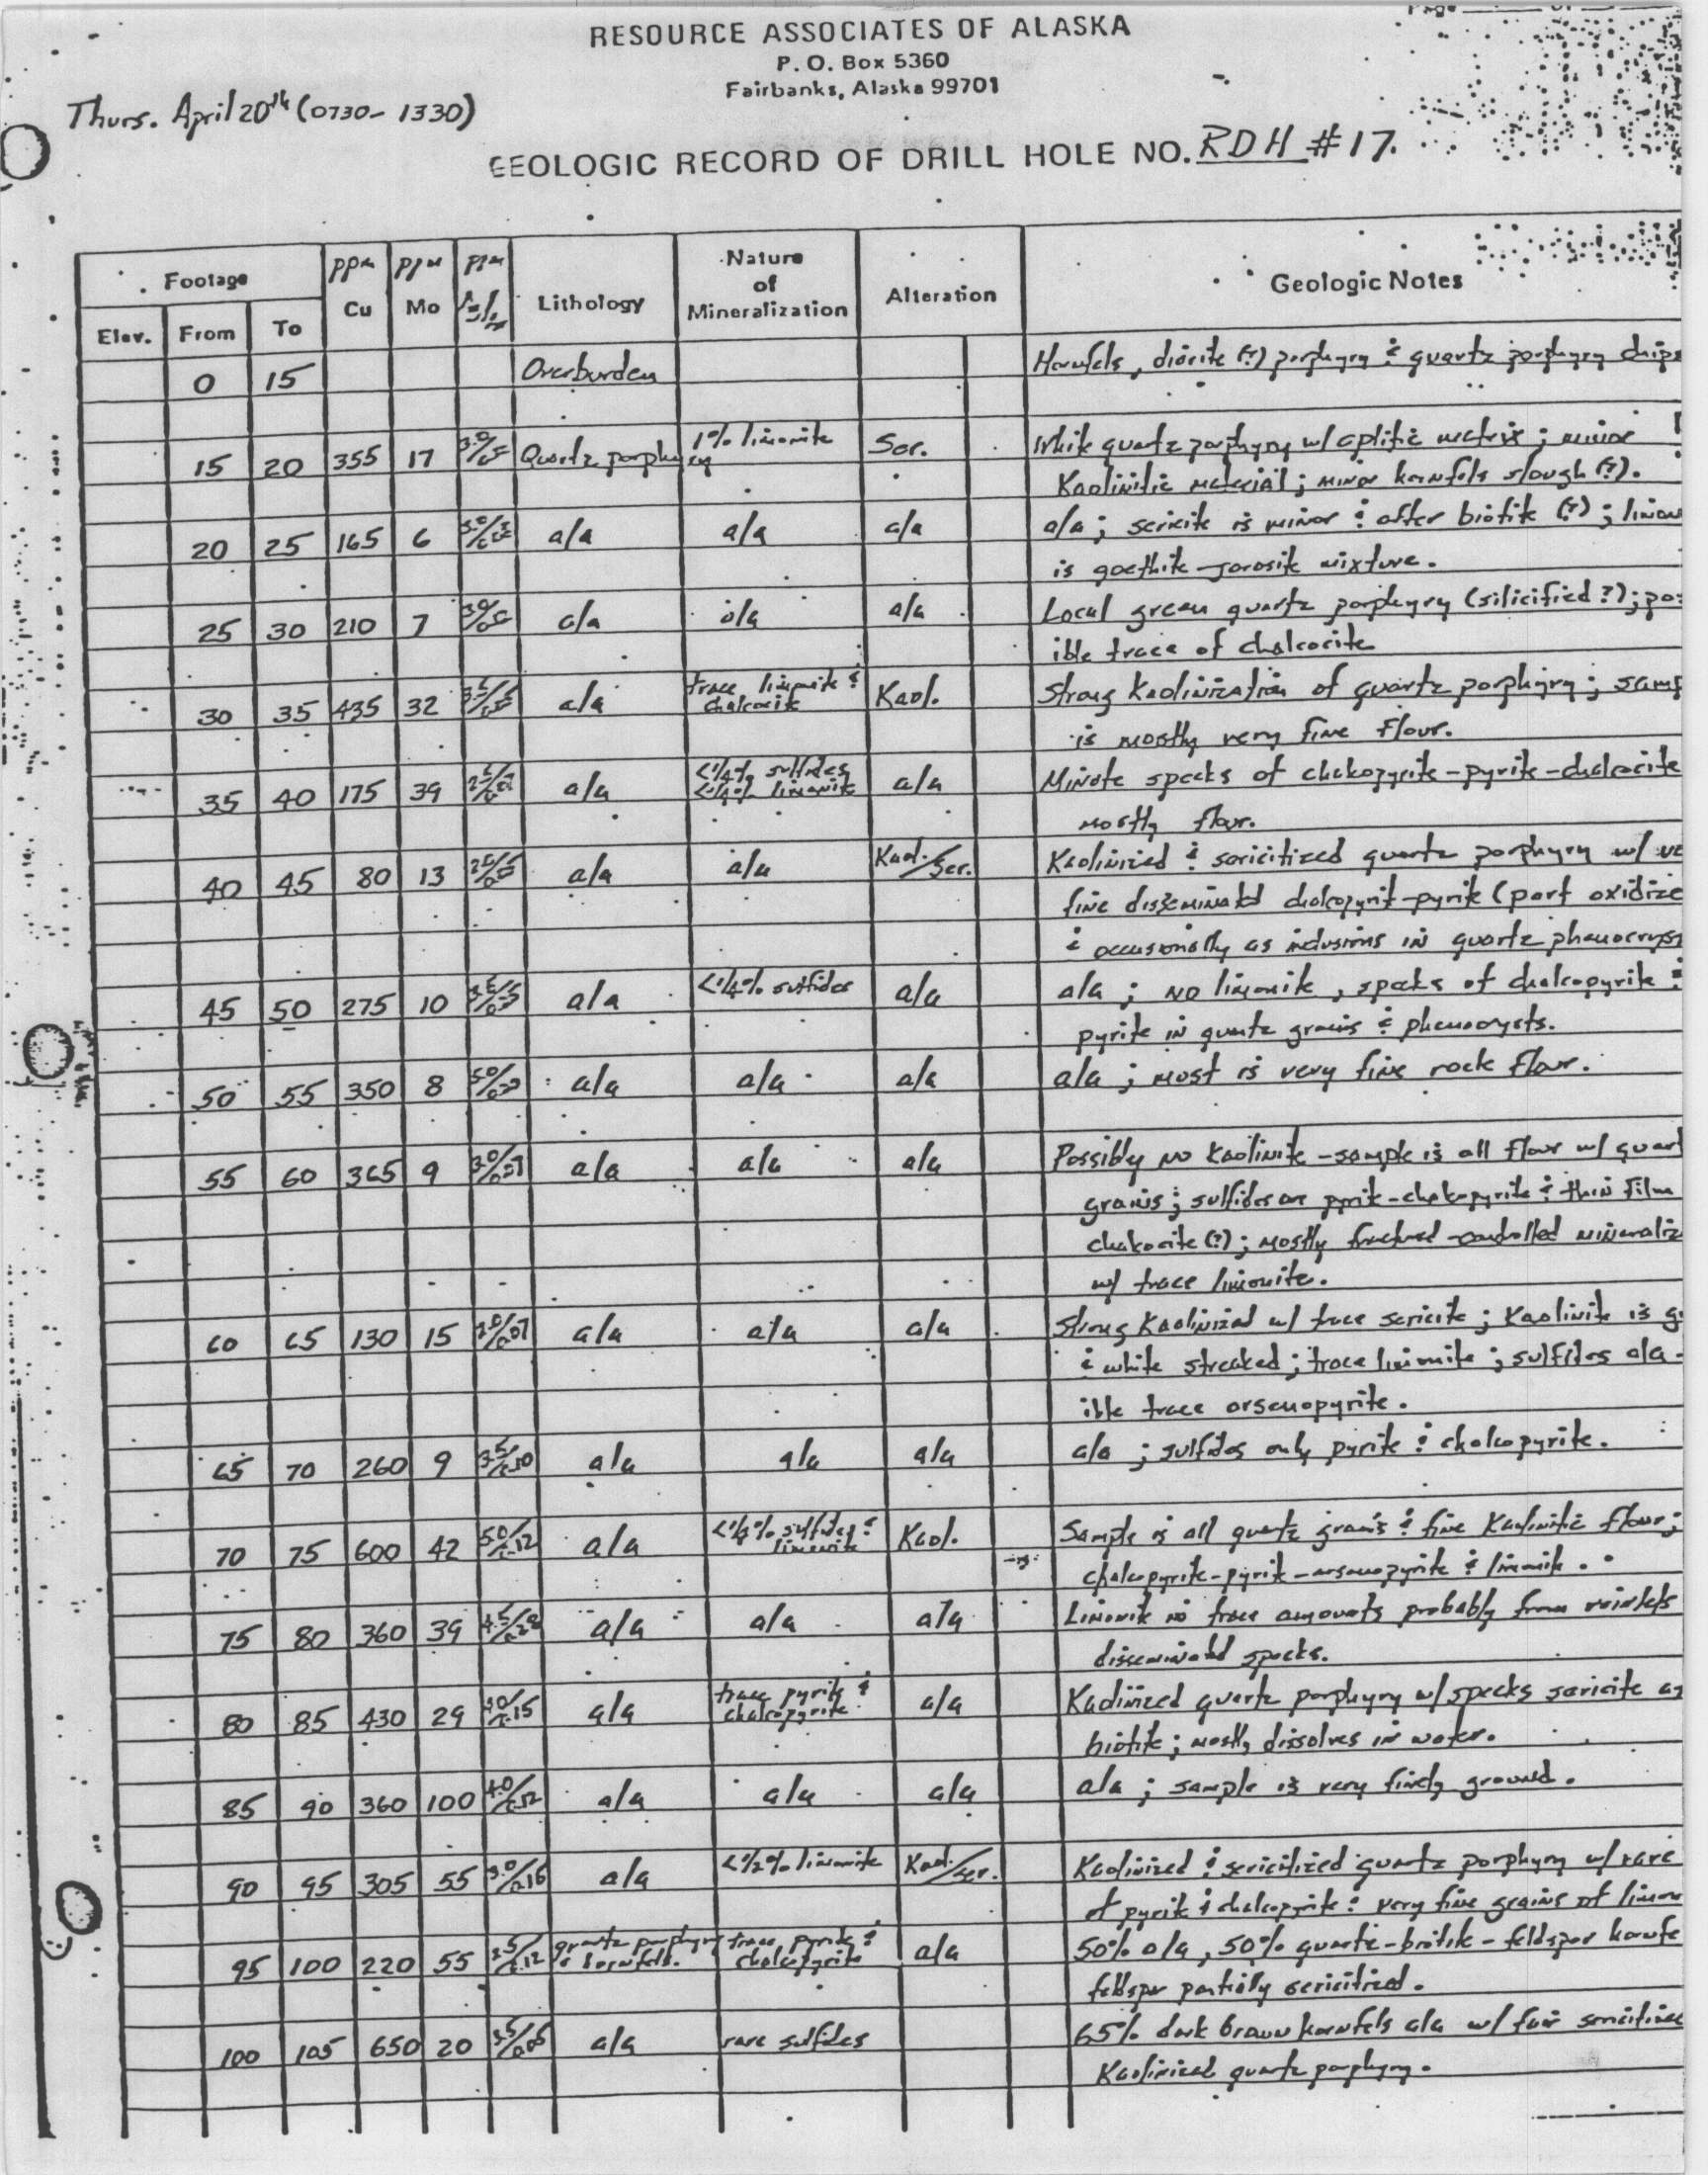 Page ___ of
RESOURCE ASSOCIATES OF ALASKA
P. O. Box 5360
Fairbanks, Alaska 99701
Thurs. April 20th (0730- 1330)
GEOLOGIC RECORD OF DRILL HOLE NO. RDH #17.
Footage ppm ppm ppm Nature of Mineralization
Elev. From To Cu Mo Lithology Alteration Geologic Notes
0 15 Overburden Hornfels, diorite (?) porphyry & quartz porphyry chips
15 20 355 17 Quartz porphyry 1% limonite Ser. White quartz porphyry w/ aplitic matrix; minor
Kaolinitic material; minor hornfels slough (?).
20 25 165 6 a/a a/a a/a a/a; sericite is minor & after biotite (?); limon
is goethite-jarosite mixture.
25 30 210 7 a/a a/a a/a Local green quartz porphyry (silicified?); pos
ible trace of chalcocite
30 35 435 32 a/a trace limonite & chalcocite Kaol. Strong Kaolinization of quartz porphyry; samp
is mostly very fine flour.
35 40 175 39 a/a <1/4% sulfides <1/4% limonite a/a Minute specks of chalcopyrite-pyrite-chalcocite
mostly flour.
40 45 80 13 a/a a/a Kaol./Ser. Kaolinized & sericitized quartz porphyry w/ ve
fine disseminated chalcopyrit-pyrite (part oxidize
& occasionally as inclusions in quartz phenocryst
45 50 275 10 a/a <1/4% sulfides a/a a/a; no limonite, specks of chalcopyrite &
pyrite in quartz grains & phenocrysts.
50 55 350 8 5.0/ a/a a/a a/a a/a; most is very fine rock flour.
55 60 365 9 3.0/ a/a a/a a/a Possibly no Kaolinite - sample is all flour w/ quart
grains; sulfides are pyrite-chalcopyrite & thin film
chalcocite (?); mostly fractured-controlled mineraliz
w/ trace limonite.
60 65 130 15 2.0/0.07 a/a a/a a/a Strong Kaolinized w/ trace sericite; Kaolinite is g
& white streaked; trace limonite; sulfides a/a -
ible trace arsenopyrite.
65 70 260 9 a/a a/a a/a a/a; sulfides only pyrite & chalcopyrite.
70 75 600 42 5.0/0.12 a/a sulfides & limonite Kaol. Sample is all quartz grains & fine Kaolinitic flour;
chalcopyrite-pyrite-arsenopyrite & limonite.
75 80 360 39 a/a a/a a/a Limonite in trace amounts probably from veinlets
disseminated specks.
80 85 430 29 a/a trace pyrite & chalcopyrite a/a Kaolinized quartz porphyry w/ specks sericite a
biotite; mostly dissolves in water.
85 90 360 100 a/a a/a a/a a/a; sample is very finely ground.
90 95 305 55 3.0/0.16 a/a <1/2% limonite Kaol./Ser. Kaolinized & sericitized quartz porphyry w/ rare
of pyrite & chalcopyrite & very fine grains of limon
95 100 220 55 quartz porphyry & hornfels. trace pyrite & chalcopyrite a/a 50% a/a, 50% quartz-biotite-feldspar hornfe
feldspar partially sericitized.
100 105 650 20 a/a rare sulfides 65% dark brown hornfels a/a w/ fair sericitize
Kaolinized quartz porphyry.